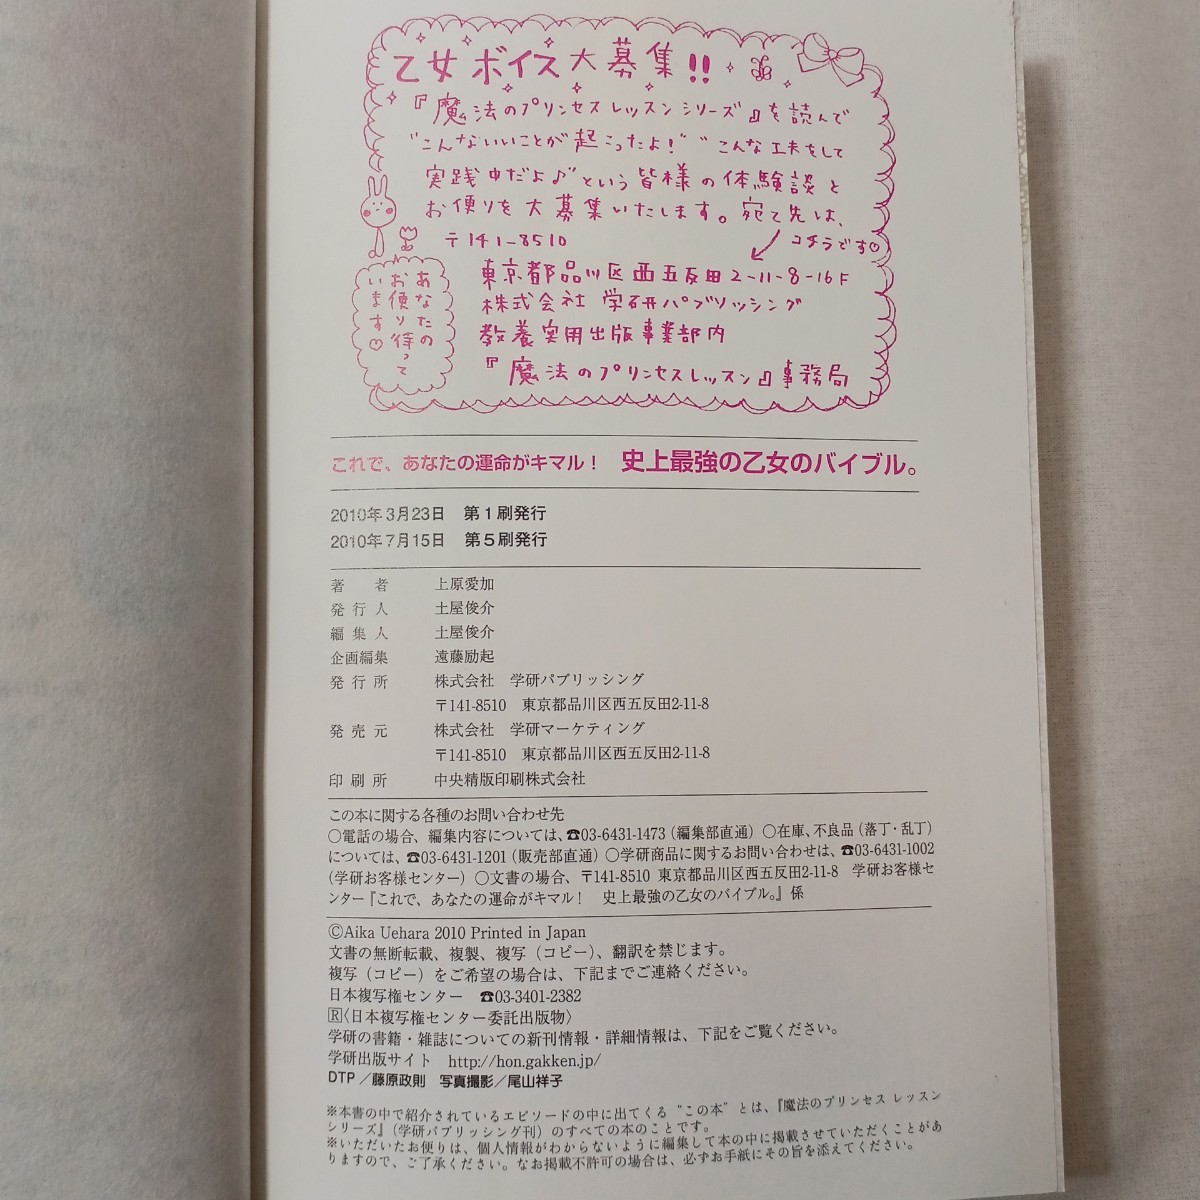 乙女ボイス大募集!!
『魔法のプリンセスレッスンシリーズ』を読んで
"こんないいことが起こったよ!" "こんな工夫をして
実践中だよ♪"という皆様の体験談と
お便りを大募集いたします。宛て先は、
コチラです♡
〒141-8510
東京都品川区西五反田2-11-8-16F
株式会社 学研パブリッシング
教養実用出版事業部内
『魔法のプリンセスレッスン』事務局
あなたの
お便り待って
います♡
これで、あなたの運命がキマル! 史上最強の乙女のバイブル。
2010年3月23日 第1刷発行
2010年7月15日 第5刷発行
著 者 上原愛加
発行人 土屋俊介
編集人 土屋俊介
企画編集 遠藤励起
発行所 株式会社 学研パブリッシング
〒141-8510 東京都品川区西五反田2-11-8
発売元 株式会社 学研マーケティング
〒141-8510 東京都品川区西五反田2-11-8
印刷所 中央精版印刷株式会社
この本に関する各種のお問い合わせ先
○電話の場合、編集内容については、☎03-6431-1473(編集部直通)○在庫、不良品(落丁・乱丁)
については、☎03-6431-1201(販売部直通)○学研商品に関するお問い合わせは、☎03-6431-1002
(学研お客様センター)○文書の場合、〒141-8510 東京都品川区西五反田2-11-8 学研お客様セ
ンター『これで、あなたの運命がキマル! 史上最強の乙女のバイブル。』係
©Aika Uehara 2010 Printed in Japan
文書の無断転載、複製、複写(コピー)、翻訳を禁じます。
複写(コピー)をご希望の場合は、下記までご連絡ください。
日本複写権センター ☎03-3401-2382
R〈日本複写権センター委託出版物〉
学研の書籍・雑誌についての新刊情報・詳細情報は、下記をご覧ください。
学研出版サイト http://hon.gakken.jp/
DTP/藤原政則 写真撮影/尾山祥子
※本書の中で紹介されているエピソードの中に出てくる"この本"とは、『魔法のプリンセス レッスン
シリーズ』(学研パブリッシング刊)のすべての本のことです。
※いただいたお便りは、個人情報がわからないように編集して本の中に掲載させていただくことがあ
りますので、ご了承ください。なお掲載不許可の場合は、必ずお手紙にその旨を添えてください。